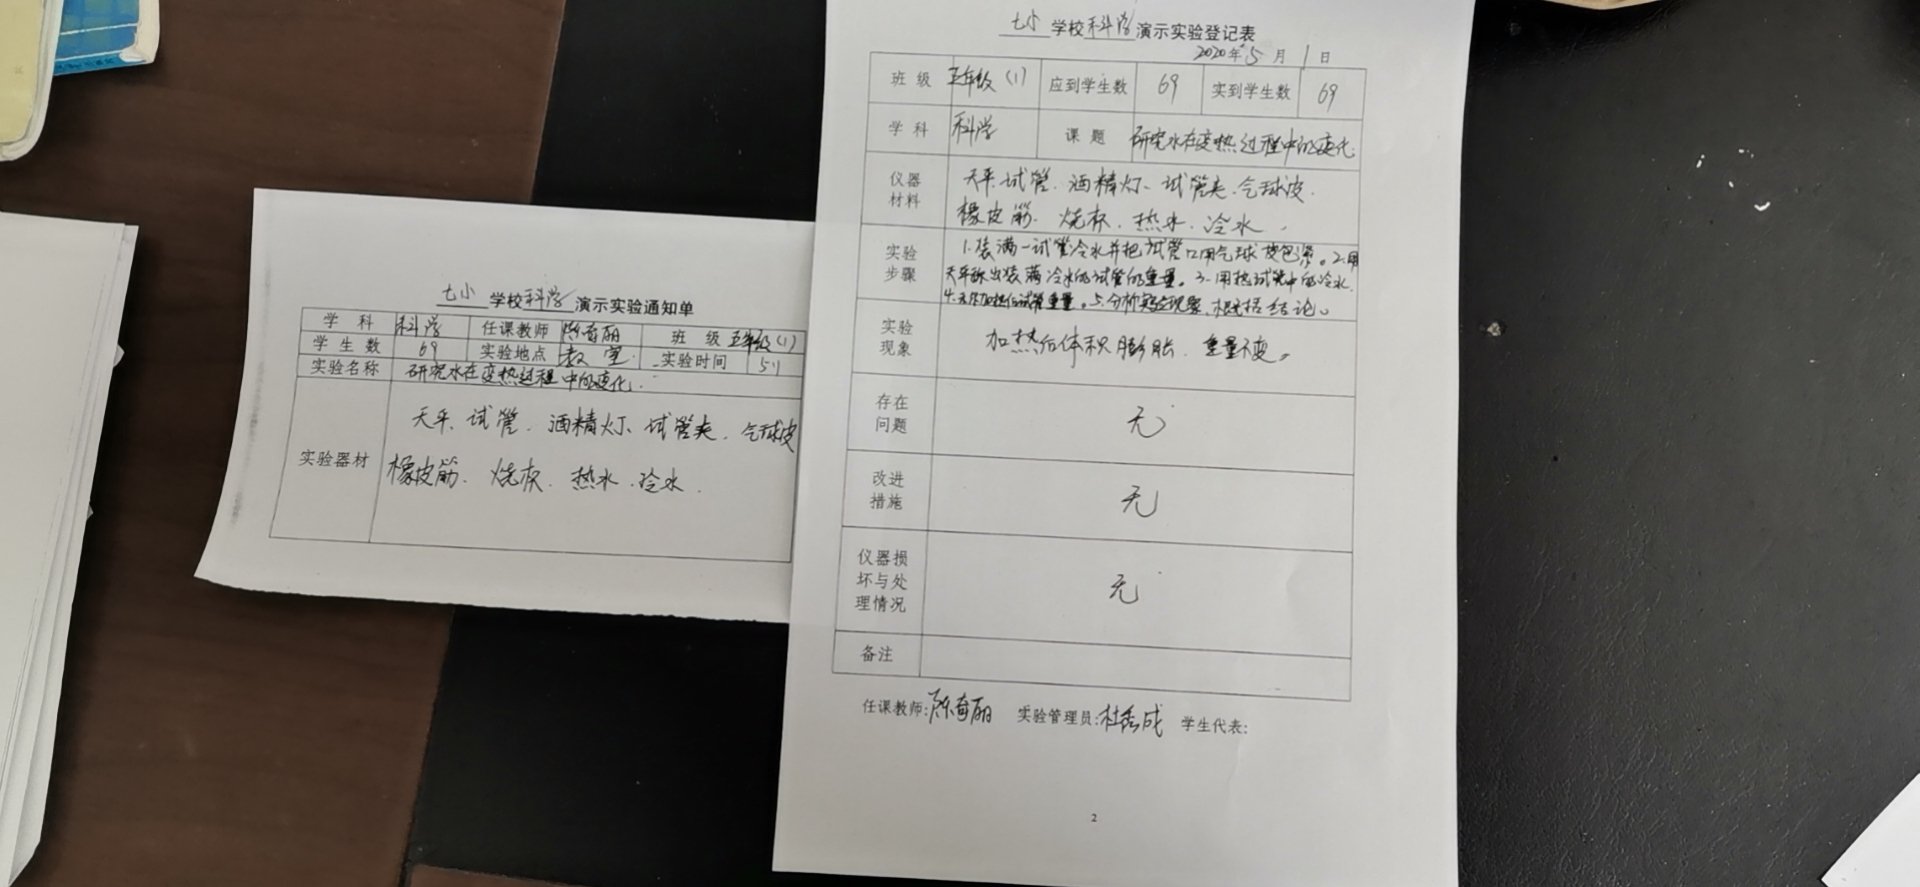 七小 学校科学演示实验通知单
学 科 科学 任课教师 陈育丽 班 级 五年级(1)
学生数 69 实验地点 教室 实验时间 5.1
实验名称 研究水在变热过程中的变化.
实验器材 天平、试管、酒精灯、试管夹、气球皮
橡皮筋、烧杯、热水、冷水.
七小 学校科学演示实验登记表
2020年5月1日
班 级 五年级(1) 应到学生数 69 实到学生数 69
学 科 科学 课 题 研究水在变热过程中的变化.
仪器材料 天平、试管、酒精灯、试管夹、气球皮.
橡皮筋、烧杯、热水、冷水.
实验步骤 1.装满一试管冷水并把试管口用气球皮包紧。2.用
天平称出装满冷水的试管的重量。3.用热试管中的冷水.
4.加热后试管重量。5.分析实验现象,概括结论。
实验现象 加热后体积膨胀、重量不变。
存在问题 无
改进措施 无
仪器损坏与处理情况 无
备注
任课教师:陈育丽 实验管理员: 学生代表:
2